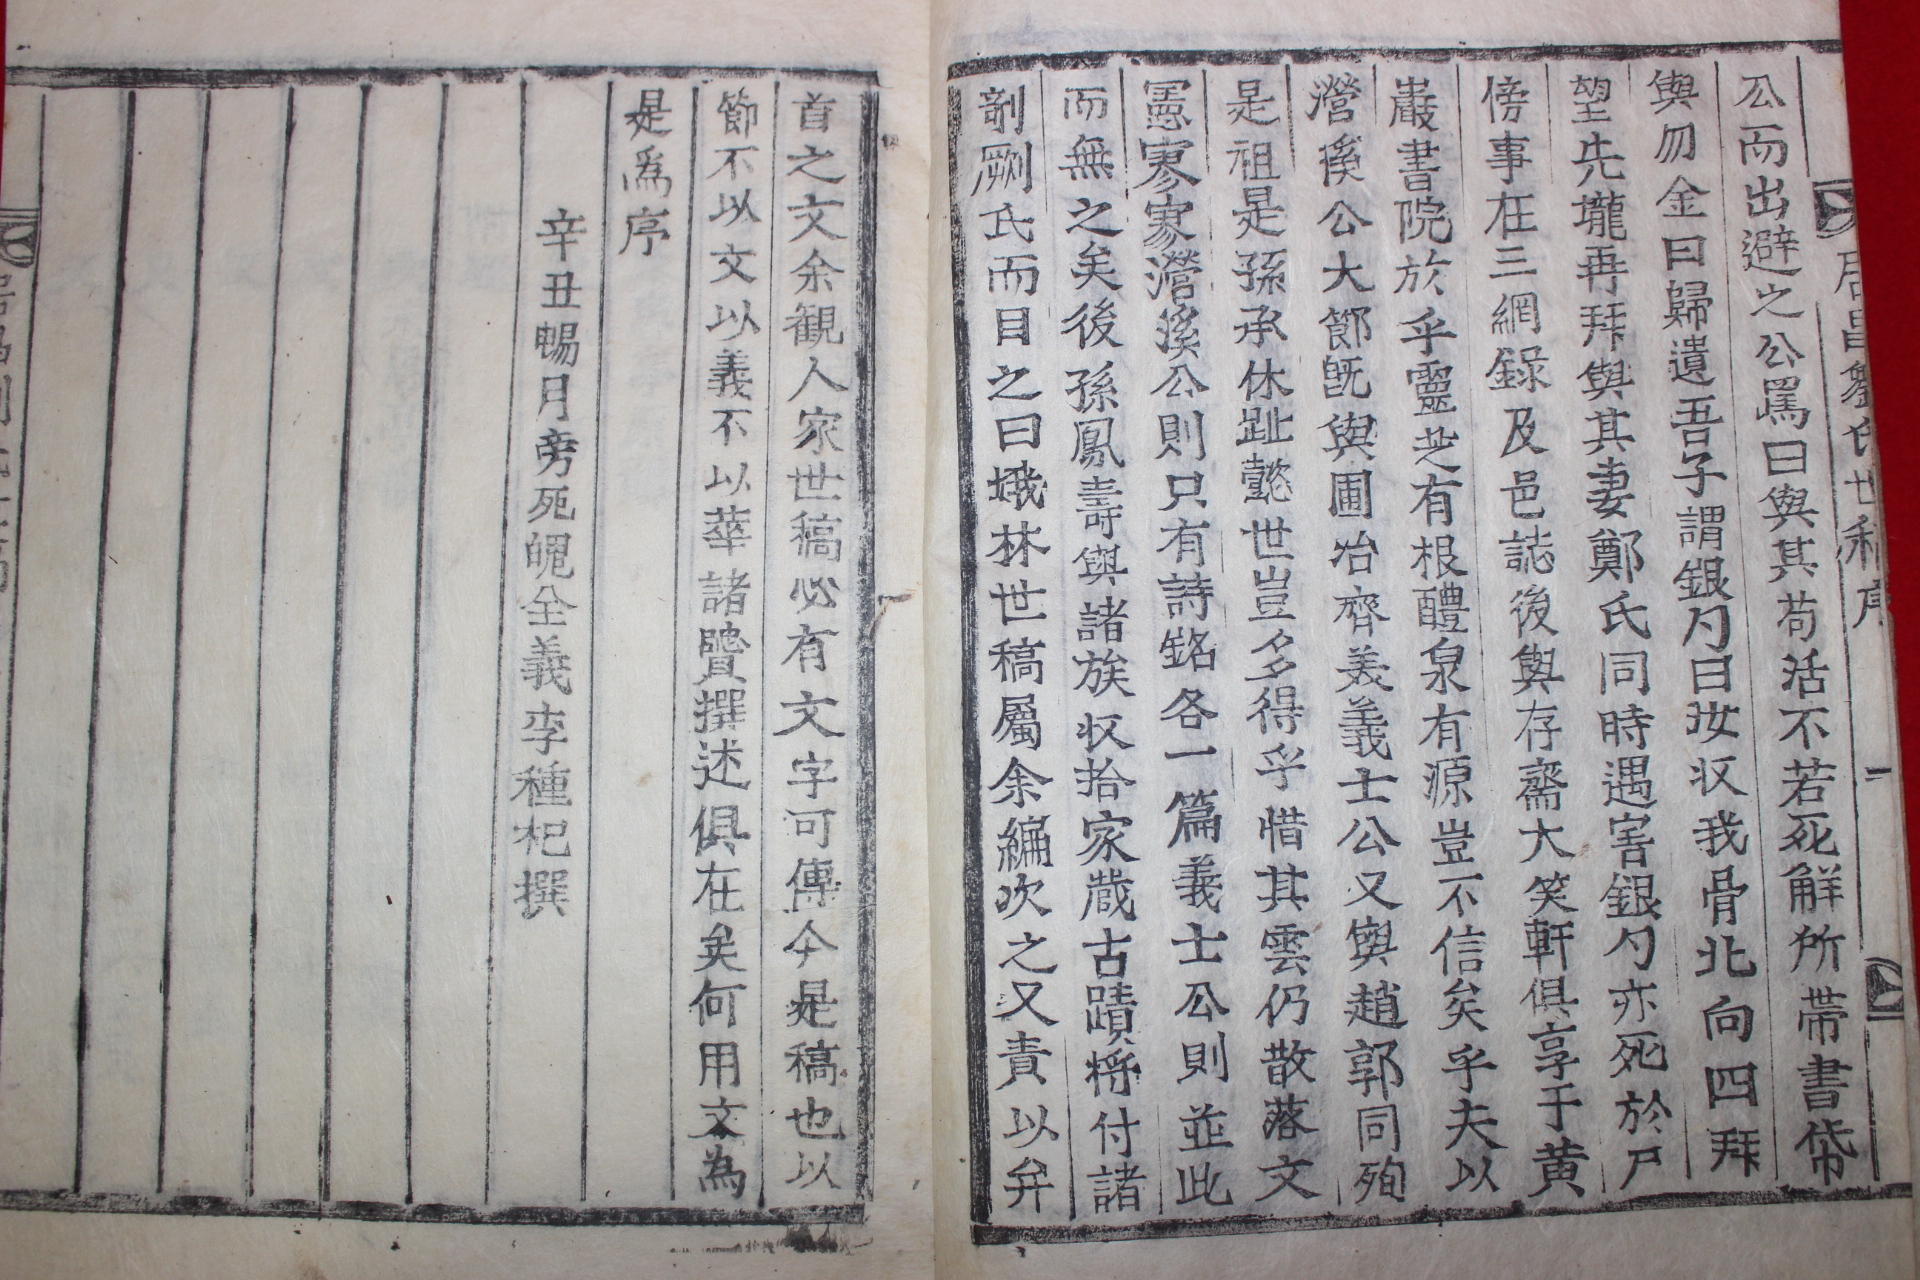 居昌劉氏世稿序
一
公而出避之公罵曰與其苟活不若死解所帶書帒
與勿金曰歸遺吾子謂銀勺曰汝収我骨北向四拜
望先壠再拜與其妻鄭氏同時遇害銀勺亦死於尸
傍事在三綱錄及邑誌後與存齋大笑軒俱享于黃
巖書院於乎靈芝有根醴泉有源豈不信矣乎夫以
濳溪公大節旣與圃冶齊美義士公又與趙郭同殉
是祖是孫承休趾懿世豈多得乎惜其雲仍散落文
憲寥寥濳溪公則只有詩銘各一篇義士公則並此
而無之矣後孫鳳壽與諸族収拾家蕆古蹟將付諸
剞劂氏而目之曰娥林世稿屬余編次之又責以弁
首之文余観人家世稿必有文字可傳今是稿也以
節不以文以義不以華諸賢撰述俱在矣何用文為
是爲序
辛丑暢月旁死魄全義李種杞撰